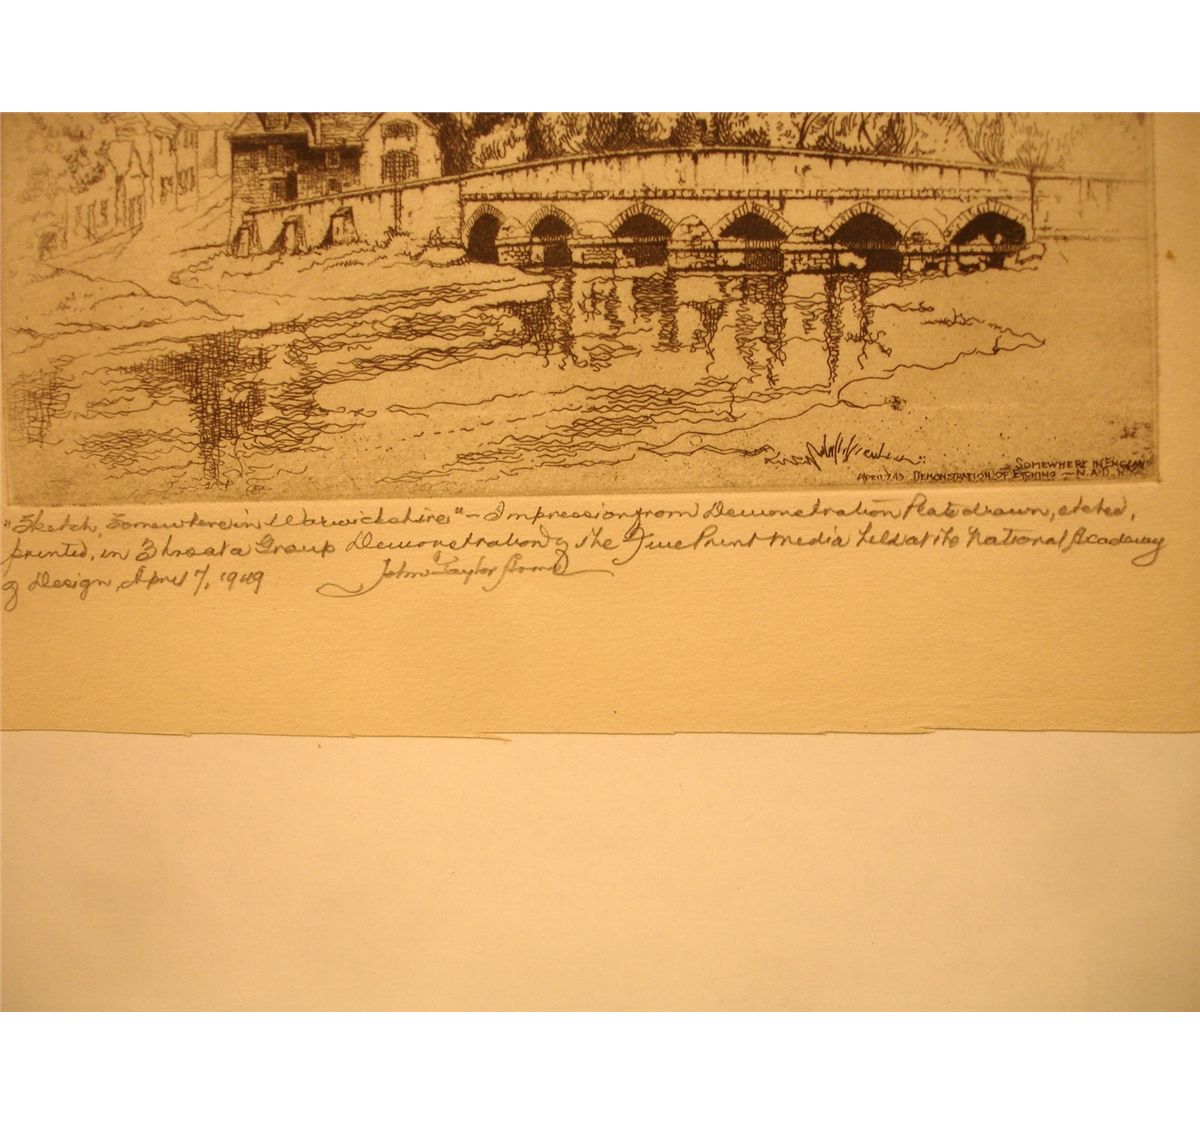 SOMEWHERE IN ENGLAND
APRIL 7, 49 DEMONSTRATION OF ETCHING — N.A.D. N.Y.
"Sketch, Somewhere in Warwickshire" — Impression from Demonstration Plate drawn, etched,
printed, in 3 hrs at a Group Demonstration of the Five Print media held at the National Academy
of Design, April 7, 1949 John Taylor Arms